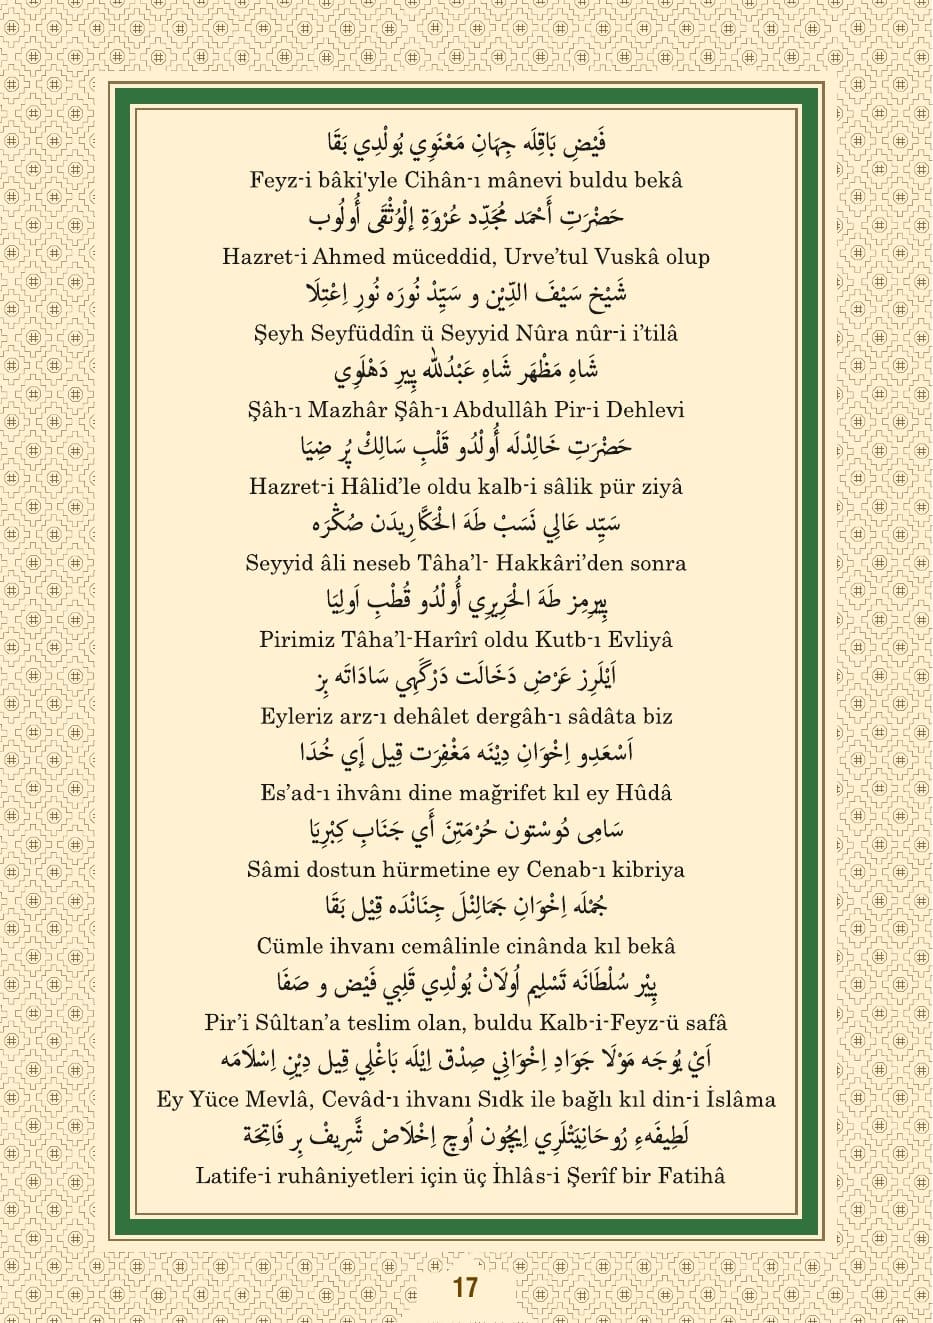 فَيْضِ بَاقِلَه جِهَانِ مَعْنَوِي بُولْدِي بَقَا
Feyz-i bâki'yle Cihân-ı mânevi buldu bekâ
حَضْرَتِ أَحْمَد مُجَدِّد عُرْوَةِ إلْوُثْقَى أُولُوب
Hazret-i Ahmed müceddid, Urve’tul Vuskâ olup
شَيْخ سَيْفَ الدِّيْن و سَيِّدْ نُورَه نُورِ اِعْتِلَا
Şeyh Seyfüddîn ü Seyyid Nûra nûr-i i’tilâ
شَاهِ مَظْهَر شَاهِ عَبْدُالله پِيرِ دَهْلَوِي
Şâh-ı Mazhâr Şâh-ı Abdullâh Pir-i Dehlevi
حَضْرَتِ خَالِدْلَه أُولْدُو قَلْبِ سَالِكْ پُر ضِيَا
Hazret-i Hâlid’le oldu kalb-i sâlik pür ziyâ
سَيِّد عَالِي نَسَبْ طَهَ الْحَكَّارِيدَن صُكْرَه
Seyyid âli neseb Tâha’l- Hakkâri’den sonra
پِيرِمِز طَهَ الْحَرِيرِي أُولْدُو قُطْبِ اَولِيَا
Pirimiz Tâha’l-Harîrî oldu Kutb-ı Evliyâ
اَيْلَرِز عَرْضِ دَخَالَت دَرْگَهِي سَادَاتَه بِز
Eyleriz arz-ı dehâlet dergâh-ı sâdâta biz
اَسْعَدِو اِخْوَانِ دِيْنَه مَغْفِرَت قِيل إَي خُدَا
Es’ad-ı ihvânı dine mağrifet kıl ey Hûdâ
سَامِى دُوسْتون حُرْمَتِنَ أَي جَنَابِ كِبْرِيَا
Sâmi dostun hürmetine ey Cenab-ı kibriya
جُمْلَه اِخْوَانِ جَمَالِنْلَ جِنَانْدَه قِيْل بَقَا
Cümle ihvanı cemâlinle cinânda kıl bekâ
پِيْر سُلْطَانَه تَسْلِيم اُولَانْ بُولْدِي قَلِبي فَيْض و صَفَا
Pir’i Sûltan’a teslim olan, buldu Kalb-i-Feyz-ü safâ
اَيْ يُوجَه مَوْلَا جَوَادِ اِخْوَانِي صِدْق اِيْلَه بَاغْلِي قِيل دِيْنِ اِسْلَامَه
Ey Yüce Mevlâ, Cevâd-ı ihvanı Sıdk ile bağlı kıl din-i İslâma
لَطِيفَهءِ رُوحَانِيَتْلَرِي اِيچُون اُوچ اِخْلَاصْ شَّرِيفْ بِر فَاتِحَة
Latife-i ruhâniyetleri için üç İhlâs-i Şerîf bir Fatihâ
17